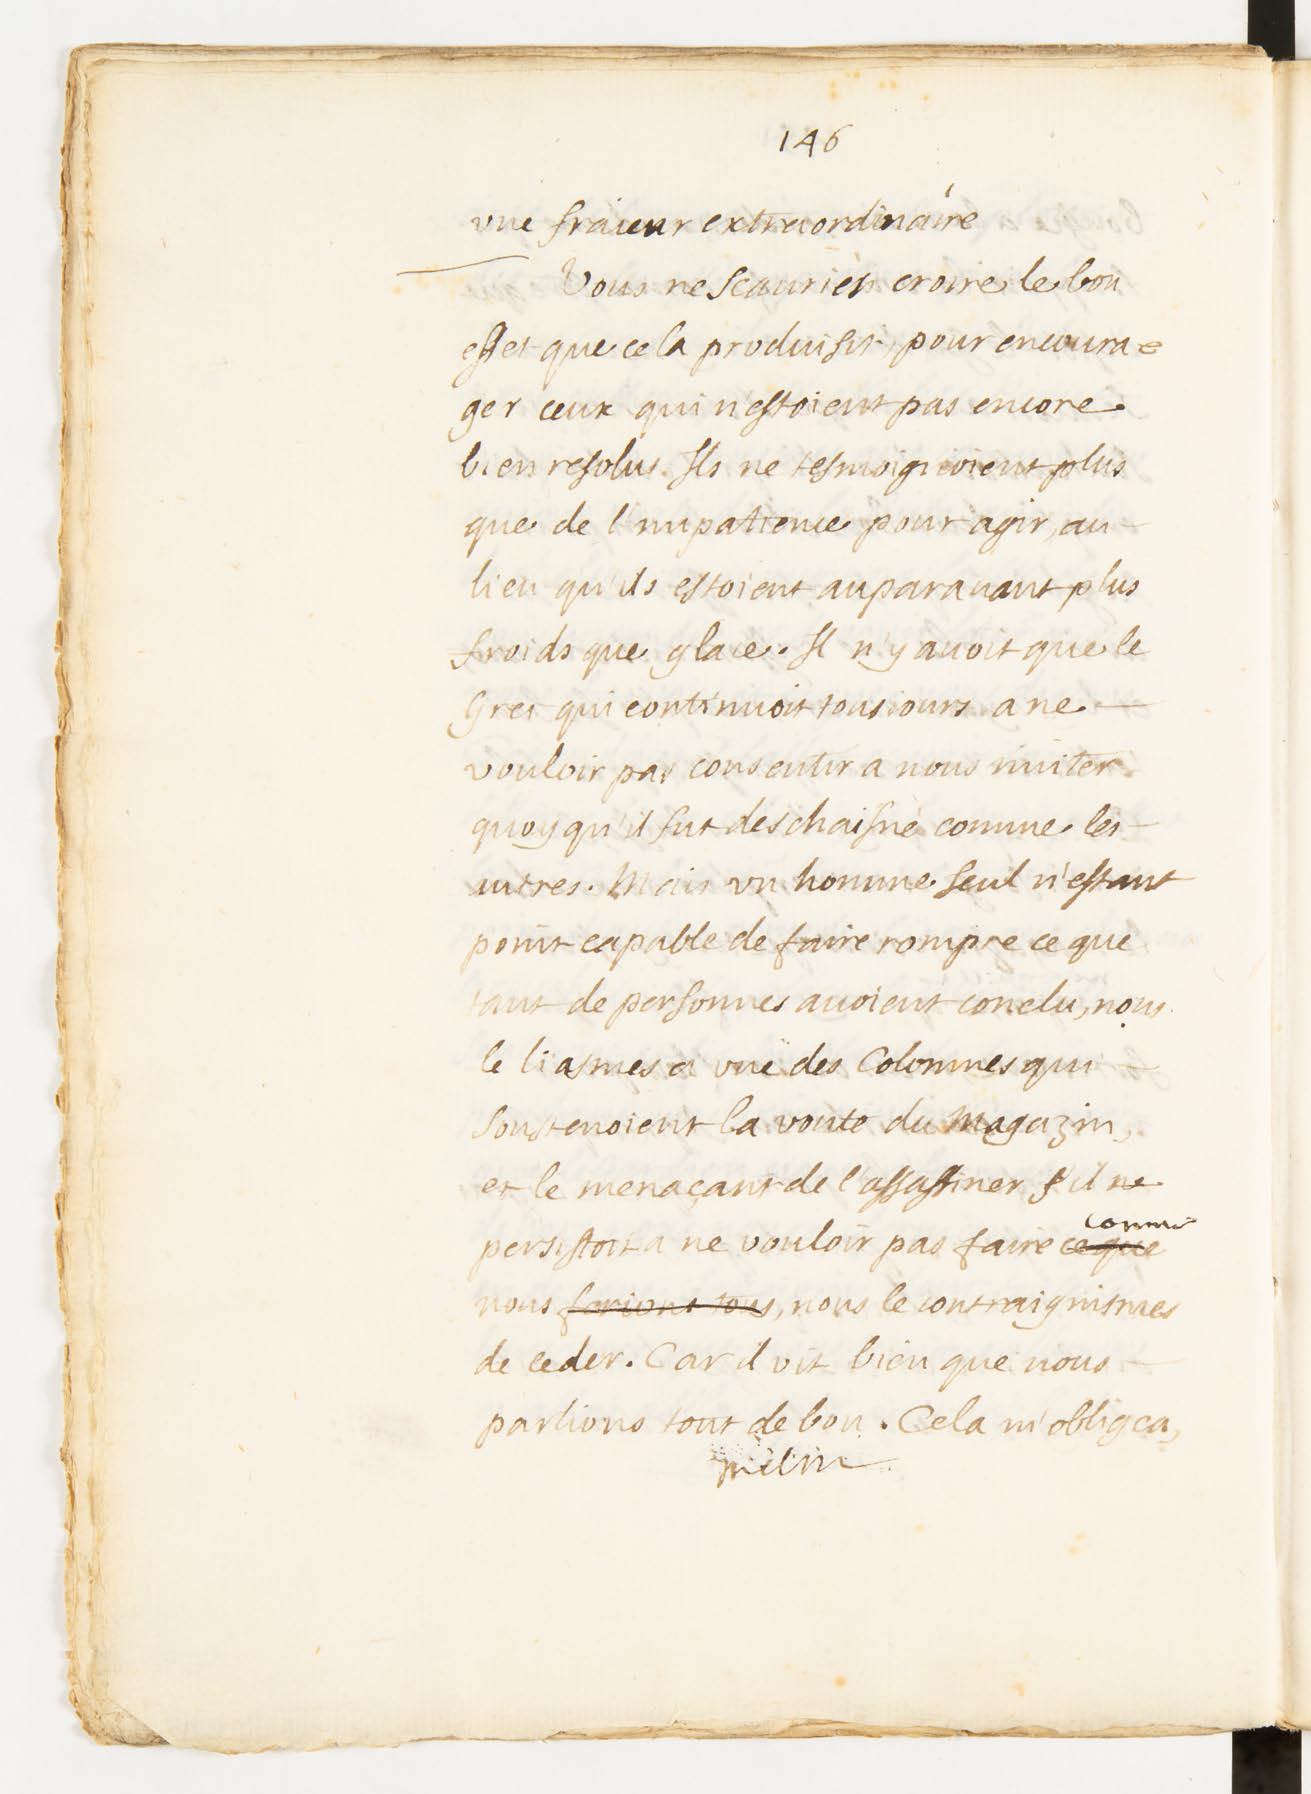 146
vne fraieur extraordinaire
Vous ne scauriés croire le bon
effet que cela produisit, pour encoura=
ger ceux qui n'estoient pas encore
bien resolus. Ils ne tesmoignoient plus
que de l'impatience pour agir, au
lieu qu'ils estoient auparauant plus
froids que glace. Il n'y auoit que le
Grec qui continuoit tousiours a ne
vouloir pas consentir a nous imiter
quoy qu'il fut deschaisné comme les
autres. Mais vn homme seul n'estant
point capable de faire rompre ce que
tant de personnes auoient conclu, nous
le liasmes a vne des Colomnes qui
soustenoient la voute du Magazin,
et le menaçant de l'assassiner s'il ne
comme
persistoit a ne vouloir pas faire ce que
nous ferions tous, nous le contraignismes
de ceder. Car il vit bien que nous
parlions tout de bon. Cela m'obligea,